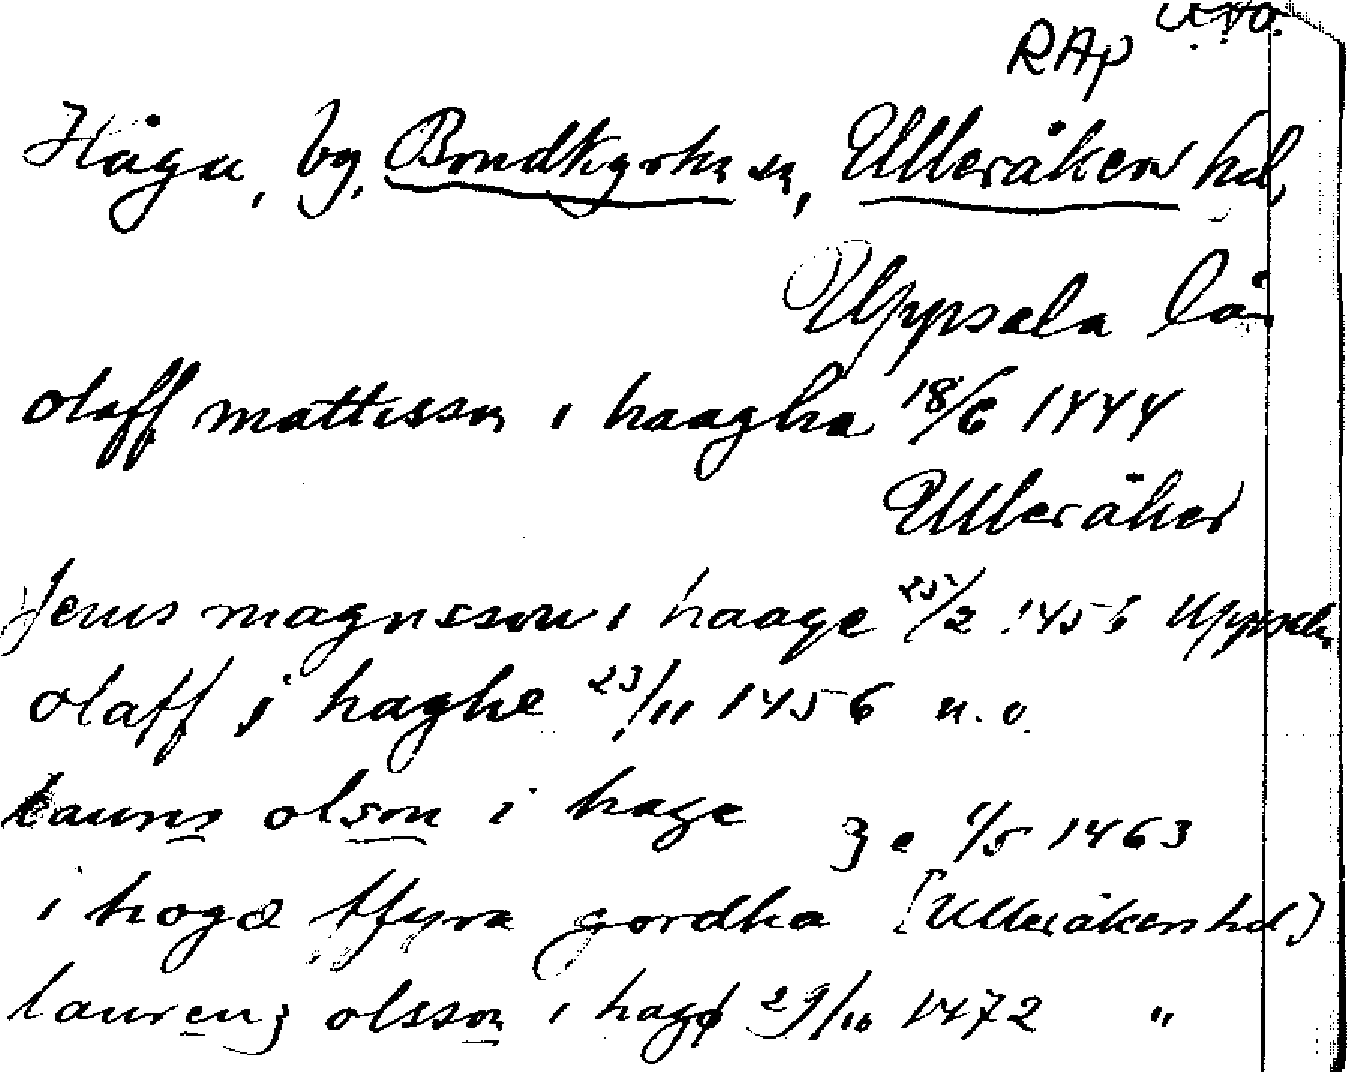 RAp
Håga, by, Bondkyrko sn, Ulleråkers hd,
Uppsala län
olaff mattisson i haagha 18/6 1444
Ulleråker
Jenis magnsson i haage 25/2 1456 Uppsala
olaff j haghe 23/11 1456 u.o.
laurns olson i hage 3 e 1/5 1463
i hogæ ffyra gordha [Ulleråkers hd]
laurenз olsson i hagø 29/10 1472 "